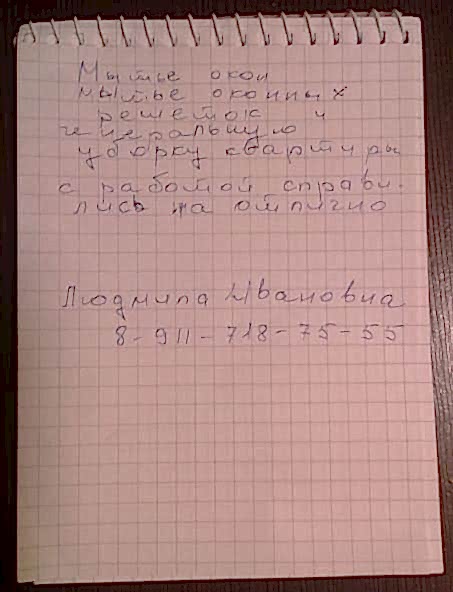 Мытье окон
мытье оконных
решеток и
генеральную
уборку квартиры
с работой справи-
лись на отлично
Людмила Ивановна
8-911-718-75-55